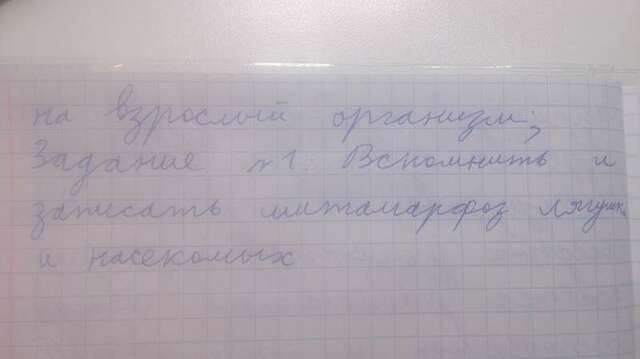 на взрослый организм;
Задание №1. Вспомнить и
записать митамарфоз лягушк
и насекомых